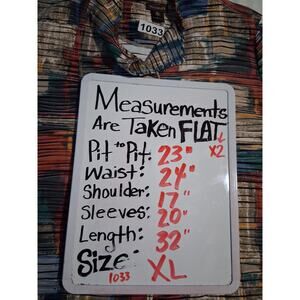 1033
Measurements
Are Taken FLAT
Pit to Pit: 23" X2
Waist: 24"
Shoulder: 17"
Sleeves: 20"
Length: 32"
Size: XL
1033